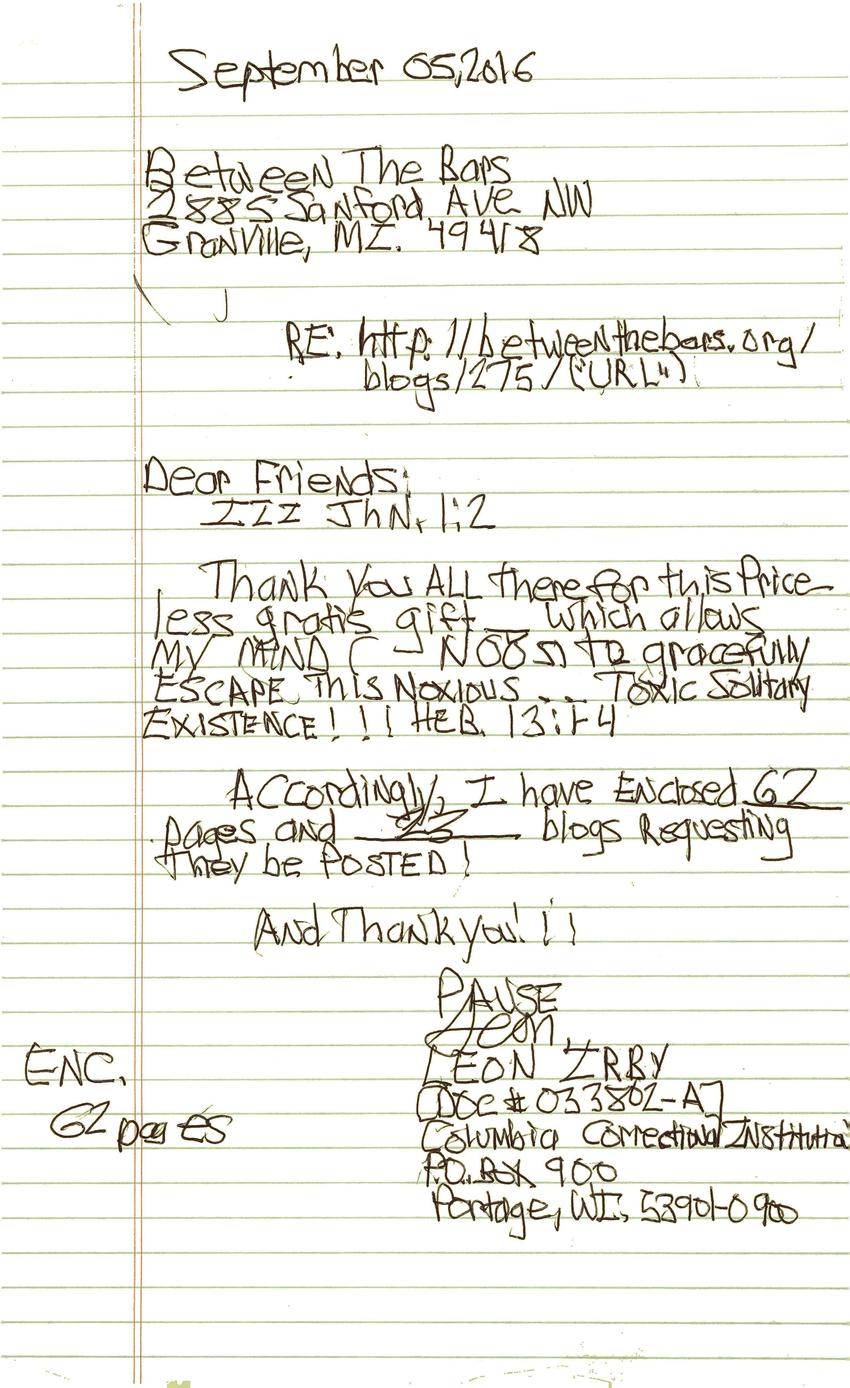 September 05, 2016
Between The Bars
2885 Sanford Ave NW
Granville, MI. 49418
RE: http://betweenthebars.org/
blogs/275/("URL")
Dear Friends:
III JhN. 1:2
Thank you ALL there for this Price-
less gratis gift __ which allows
MY MIND ( to gracefully
ESCAPE This Noxious -- Toxic Solitary
EXISTENCE!!! HEB. 13:1-4
Accordingly, I have Enclosed 62
pages and 23 blogs Requesting
they be POSTED!
And Thank you!!!
PAUSE
Leon
LEON IRBY
[DOC # 033862-A]
Columbia Correctional Institution
P.O. Box 900
Portage, WI. 53901-0900
ENC.
62 pages